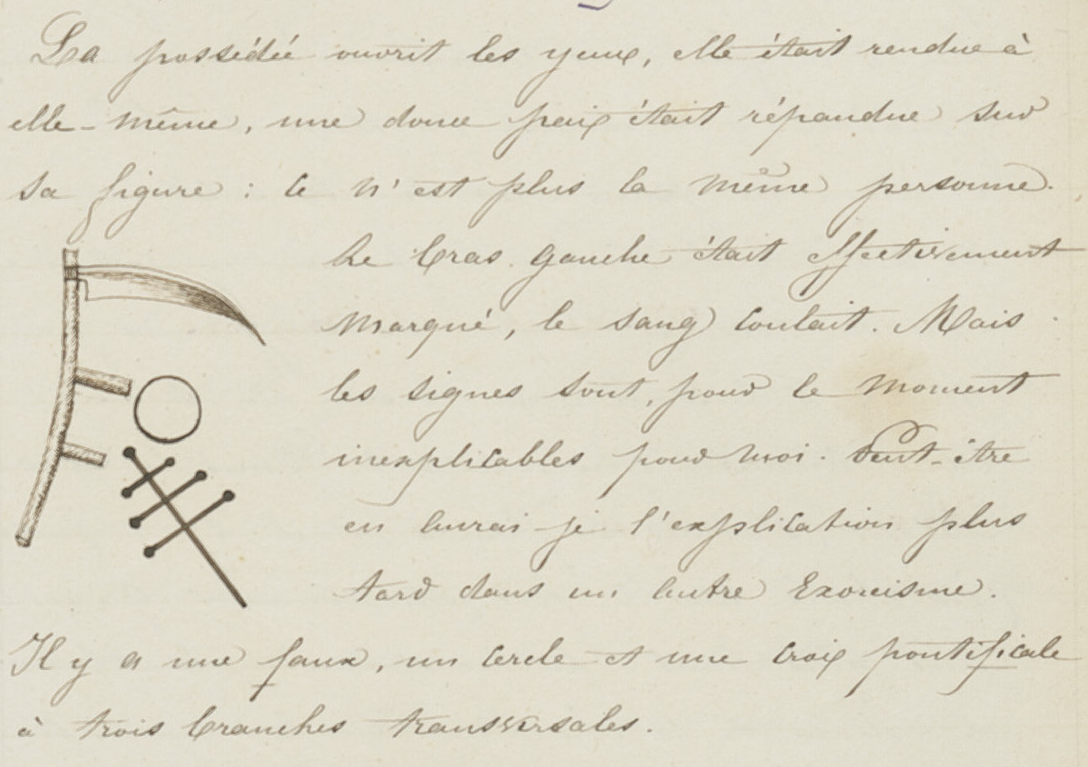 La possédée ouvrit les yeux, elle était rendue à
elle-même, une douce paix était répandue sur
sa figure : ce n'est plus la même personne.
Le bras gauche était effectivement
marqué, le sang coulait. Mais
les signes sont, pour le moment
inexplicables pour moi. Peut-être
en aurai-je l'explication plus
tard dans un autre Exorcisme.
Il y a une faux, un cercle et une croix pontificale
à trois branches transversales.